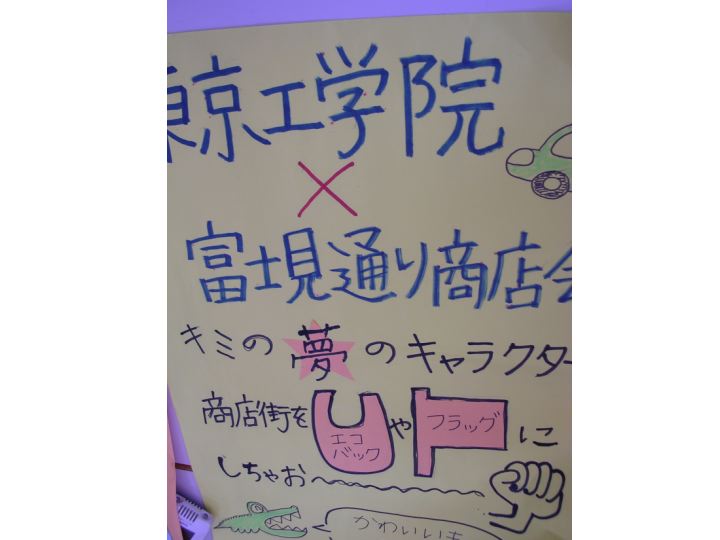 東京工学院
×
富士見通り商店会
キミの夢のキャラクター
商店街をエコバックやフラッグに
しちゃお〜
かわいいキ